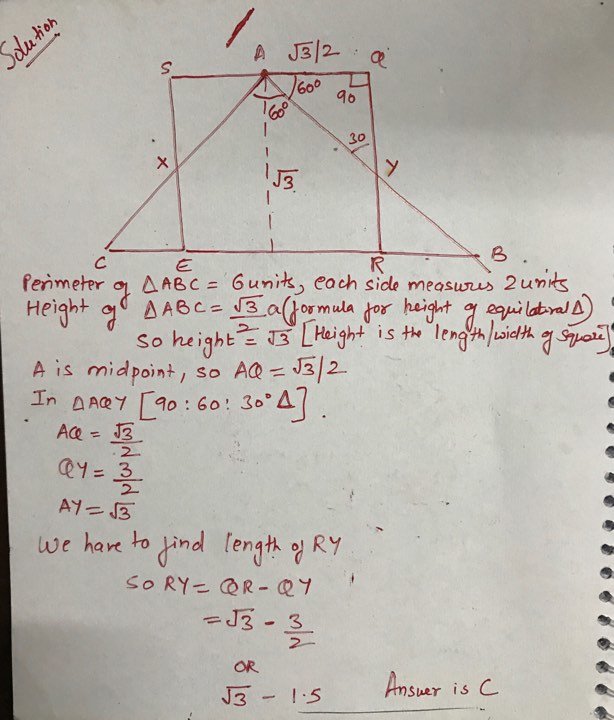 Solution
S A √3/2 Q
60° 90
60°
30
X √3 Y
C E R B
Perimeter of △ABC = 6 units, each side measures 2 units
Height of △ABC = √3/2 a (formula for height of equilateral △)
So height = √3 [Height is the length/width of square]
A is midpoint, so AQ = √3/2
In △AQY [90 : 60 : 30° △].
AQ = √3/2
QY = 3/2
AY = √3
We have to find length of RY
So RY = QR - QY
= √3 - 3/2
OR
√3 - 1.5 Answer is C